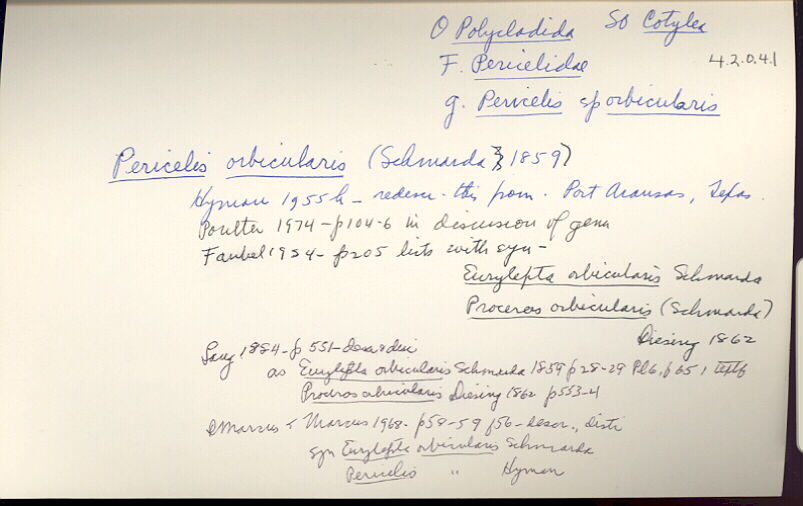 O Polycladida SO Cotylea
F. Pericelidae 4.2.0.4.1
g. Pericelis sp orbicularis
Pericelis orbicularis (Schmarda 1859)
Hyman 1955 - redescr. this from. Port Aransas, Texas.
Poulter 1974 - p104-6 in discussion of genu
Faubel 1984 - p205 lists with syn -
Eurylepta orbicularis Schmarda
Proceros orbicularis (Schmarda)
Diesing 1862
Lang 1884 - p 551 -
as Eurylepta orbicularis Schmarda 1859 p28-29 Pl 6, f 65,
Proceros orbicularis Diesing 1862 p553-4
Marcus & Marcus 1968 - p58-59 f56 - descr., distr
syn Eurylepta orbicularis Schmarda
Pericelis " Hyman